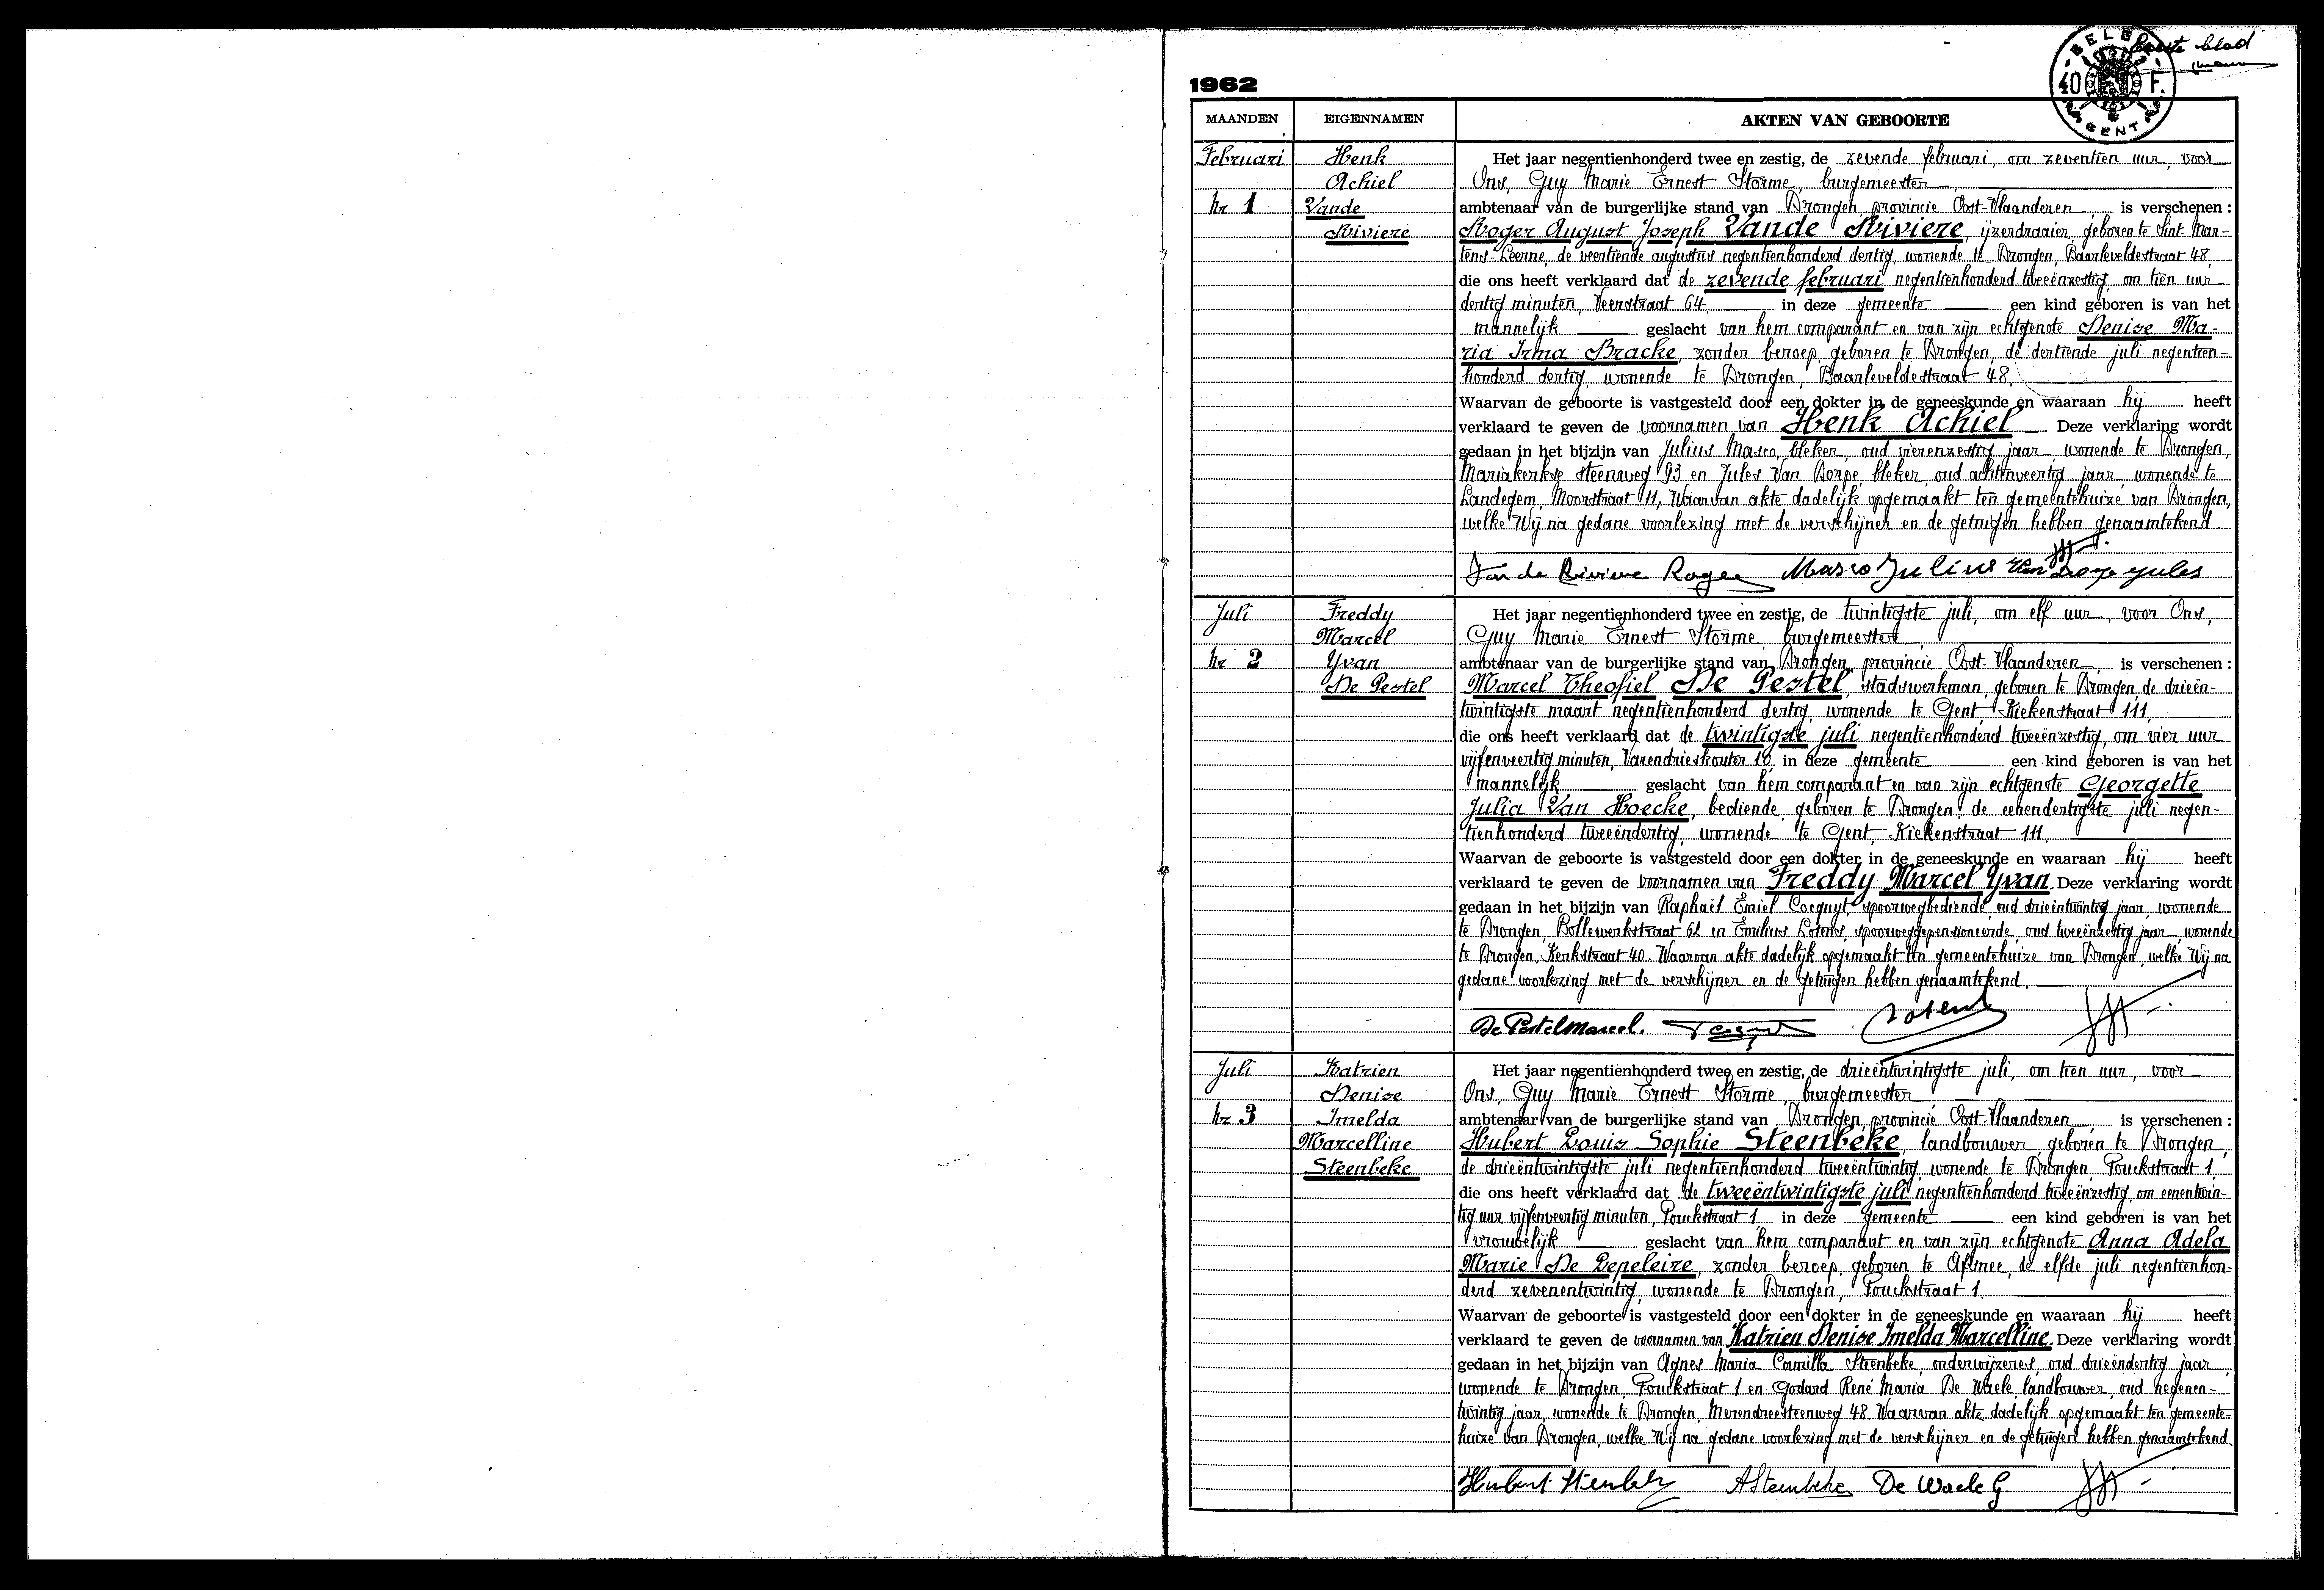 Eerste blad
BELGIË
40 F.
GENT
1962
MAANDEN EIGENNAMEN AKTEN VAN GEBOORTE
Februari
nr 1
Henk
Achiel
Vande
Riviere
Het jaar negentienhonderd twee en zestig, de zevende februari, om zeventien uur, voor
Ons, Guy Marie Ernest Storme, burgemeester
ambtenaar van de burgerlijke stand van Drongen, provincie Oost-Vlaanderen, is verschenen :
Roger August Joseph Vande Riviere, ijzerdraaier, geboren te Sint Mar-
tens-Leerne, de veertiende augustus negentienhonderd dertig, wonende te Drongen, Baarleveldestraat 48,
die ons heeft verklaard dat de zevende februari negentienhonderd tweeënzestig, om tien uur
dertig minuten, Veerstraat 64, in deze gemeente een kind geboren is van het
mannelijk geslacht van hem comparant en van zijn echtgenote Denise Ma-
ria Irma Bracke, zonder beroep, geboren te Drongen, de dertiende juli negentien-
honderd dertig, wonende te Drongen, Baarleveldestraat 48.
Waarvan de geboorte is vastgesteld door een dokter in de geneeskunde en waaraan hij heeft
verklaard te geven de voornamen van Henk Achiel. Deze verklaring wordt
gedaan in het bijzijn van Julius Masco, bleker, oud vierenzestig jaar, wonende te Drongen,
Mariakerkse steenweg 93 en Jules Van Dorpe, bleker, oud achtenveertig jaar, wonende te
Landegem, Moorstraat 11, Waarvan akte dadelijk opgemaakt ten gemeentehuize van Drongen,
welke Wij na gedane voorlezing met de verschijner en de getuigen hebben genaamtekend.
Van de Riviere Roger Masco Julius Van Dorpe Jules
Juli
nr 2
Freddy
Marcel
Yvan
De Pestel
Het jaar negentienhonderd twee en zestig, de twintigste juli, om elf uur, voor Ons,
Guy Marie Ernest Storme, burgemeester
ambtenaar van de burgerlijke stand van Drongen, provincie Oost-Vlaanderen, is verschenen :
Marcel Theofiel De Pestel, stadswerkman, geboren te Drongen, de drieën-
twintigste maart negentienhonderd dertig, wonende te Gent, Kiekenstraat 111,
die ons heeft verklaard dat de twintigste juli negentienhonderd tweeënzestig, om vier uur
vijfenveertig minuten, Varendrieskouter 10, in deze gemeente een kind geboren is van het
mannelijk geslacht van hem comparant en van zijn echtgenote Georgette
Julia Van Hoecke, bediende, geboren te Drongen, de eenendertigste juli negen-
tienhonderd tweeëndertig, wonende te Gent, Kiekenstraat 111.
Waarvan de geboorte is vastgesteld door een dokter in de geneeskunde en waaraan hij heeft
verklaard te geven de voornamen van Freddy Marcel Yvan. Deze verklaring wordt
gedaan in het bijzijn van Raphaël Emiel Cocquyt, spoorwegbediende, oud drieëntwintig jaar, wonende
te Drongen, Bollewerkstraat 62 en Emilius Lotens, spoorweggepensioneerde, oud tweeënzestig jaar, wonende
te Drongen, Kerkstraat 40. Waarvan akte dadelijk opgemaakt ten gemeentehuize van Drongen, welke Wij na
gedane voorlezing met de verschijner en de getuigen hebben genaamtekend.
De Pestel Marcel. Lotens
Juli
nr 3
Katrien
Denise
Imelda
Marcelline
Steenbeke
Het jaar negentienhonderd twee en zestig, de drieëntwintigste juli, om tien uur, voor
Ons, Guy Marie Ernest Storme, burgemeester
ambtenaar van de burgerlijke stand van Drongen, provincie Oost-Vlaanderen, is verschenen :
Hubert Louis Sophie Steenbeke, landbouwer, geboren te Drongen,
de drieëntwintigste juli negentienhonderd tweeëntwintig, wonende te Drongen, Pouckstraat 1,
die ons heeft verklaard dat de tweeëntwintigste juli negentienhonderd tweeënzestig, om eenentwin-
tig uur vijfenveertig minuten, Pouckstraat 1, in deze gemeente een kind geboren is van het
vrouwelijk geslacht van hem comparant en van zijn echtgenote Anna Adela
Marie De Lepeleire, zonder beroep, geboren te Afsnee, de elfde juli negentienhon-
derd zevenentwintig, wonende te Drongen, Pouckstraat 1.
Waarvan de geboorte is vastgesteld door een dokter in de geneeskunde en waaraan hij heeft
verklaard te geven de voornamen van Katrien Denise Imelda Marcelline. Deze verklaring wordt
gedaan in het bijzijn van Agnes Maria Camilla Steenbeke, onderwijzeres, oud drieëndertig jaar,
wonende te Drongen, Pouckstraat 1 en Godard René Maria De Waele, landbouwer, oud negenen-
twintig jaar, wonende te Drongen, Merendreesteenweg 48. Waarvan akte dadelijk opgemaakt ten gemeente-
huize van Drongen, welke Wij na gedane voorlezing met de verschijner en de getuigen hebben genaamtekend.
Hubert Steenbeke ASteenbeke De Waele G.